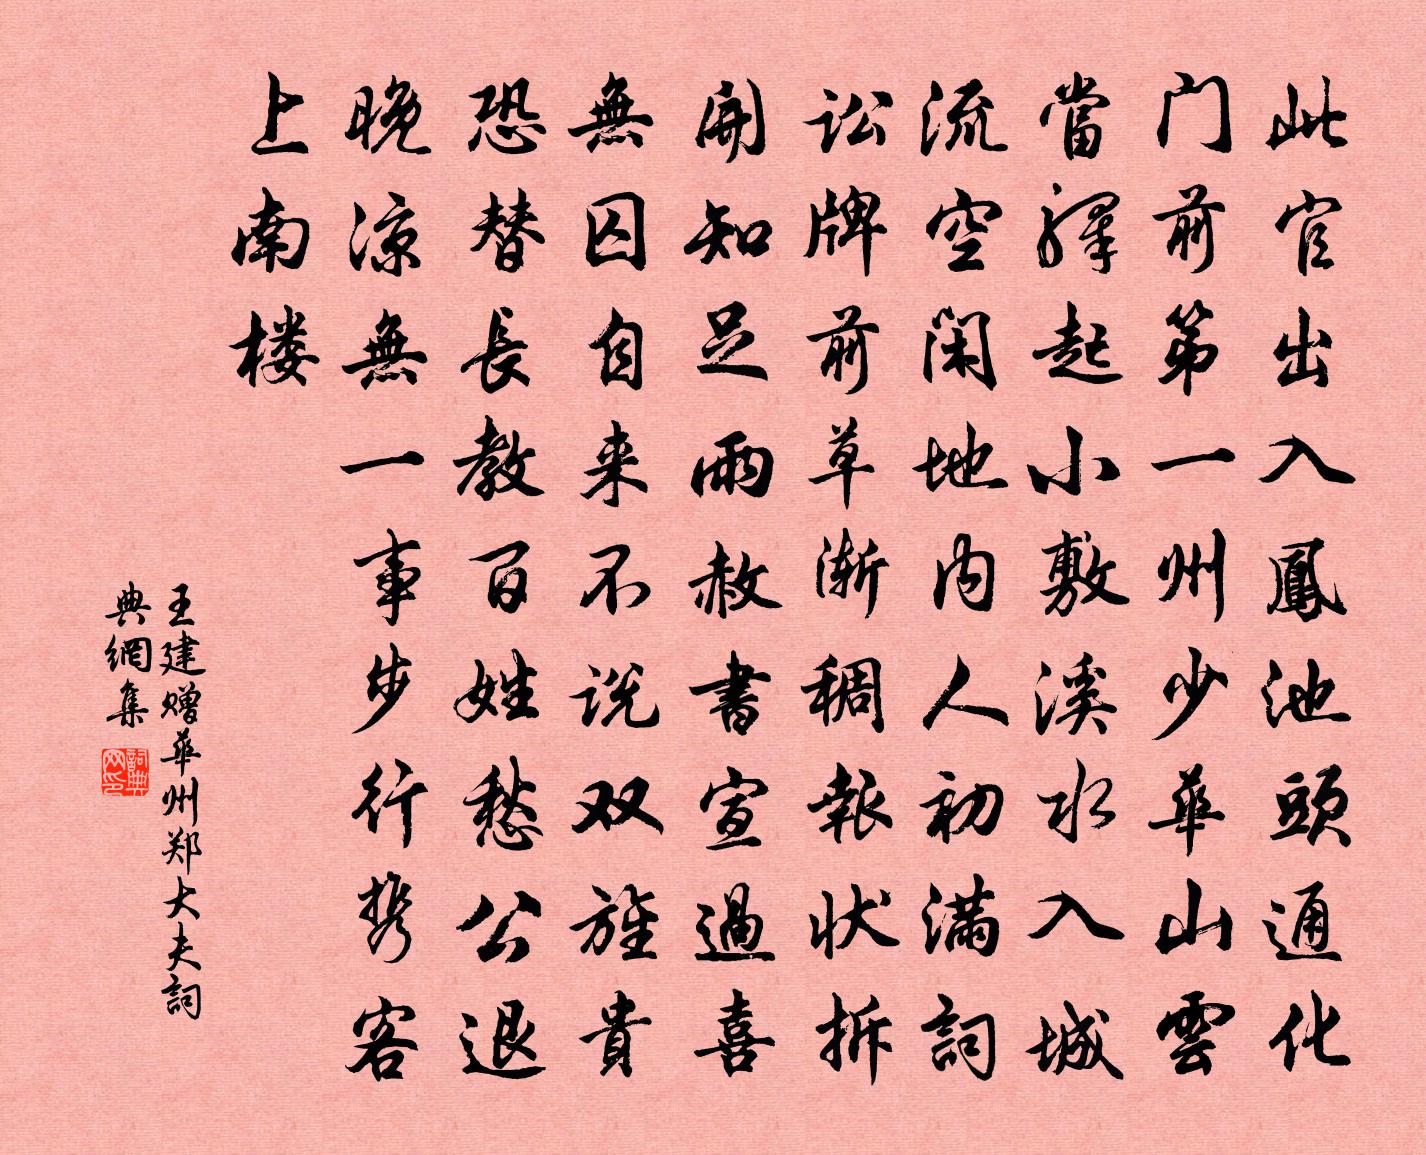 此官出入鳳池頭通化
门前第一州少華山雲
當驛起小敷溪水入城
流空閑地内人初滿詞
讼牌前草漸稠報状拆
開知足雨赦書宣過喜
無囚自来不说双旌貴
恐替長教百姓愁公退
晚凉無一事步行携客
上南楼
王建赠華州郑大夫詞
典網集
詞典
网印